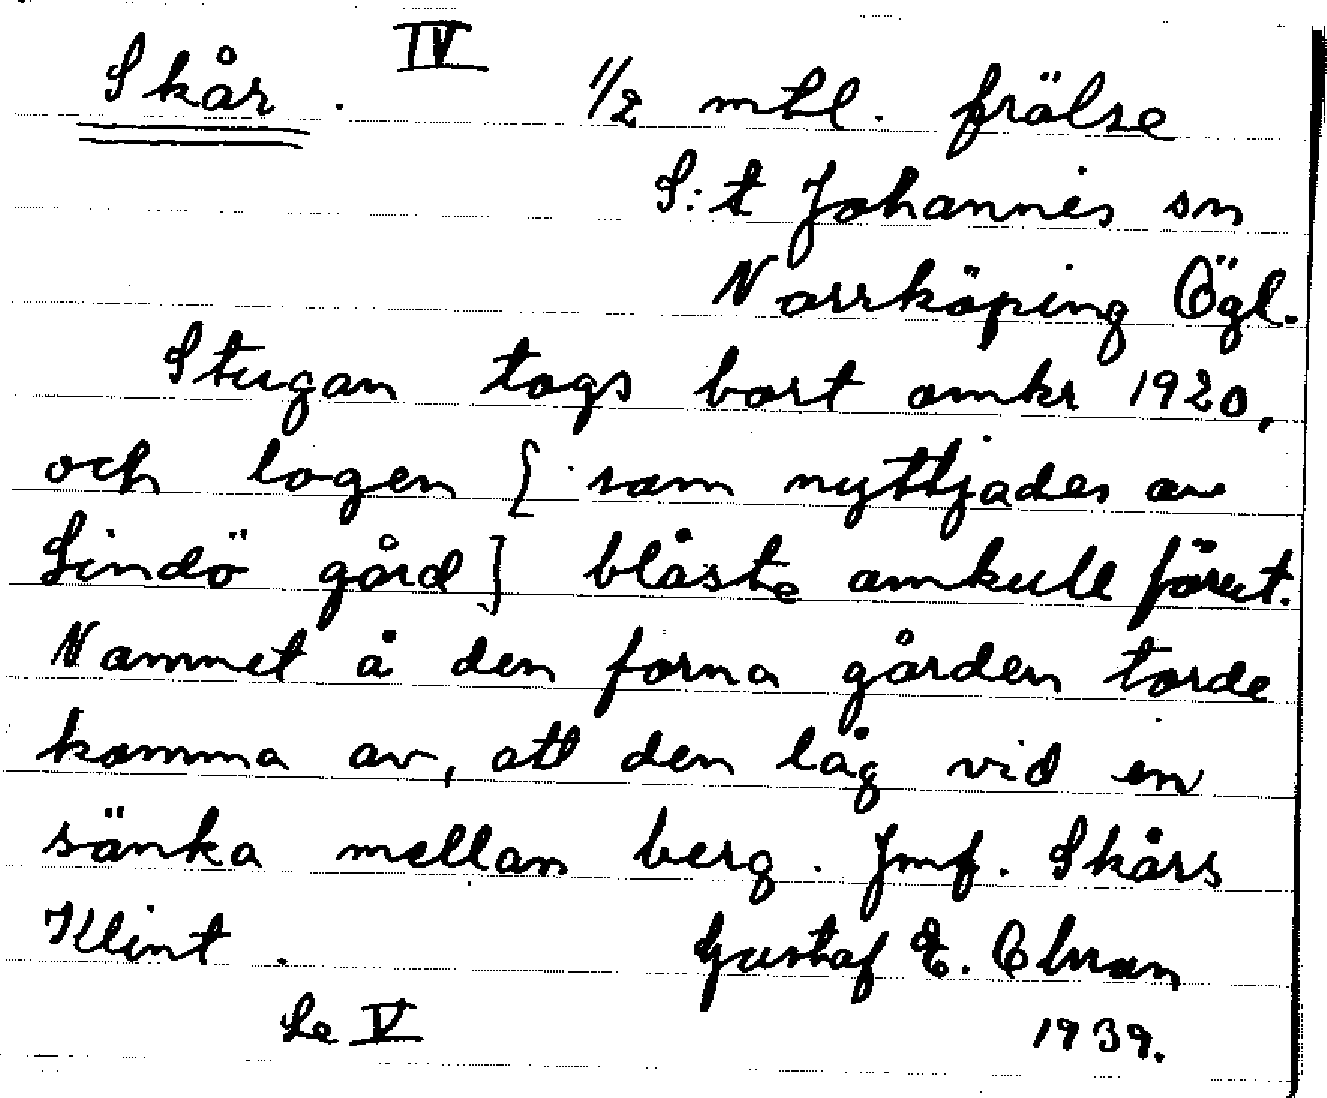 IV
Skår. 1/2 mtl. frälse
S:t Johannes sn
Norrköping Ögl.
Stugan togs bort omkr 1920,
och logen [ som nyttjades av
Lindö gård ] blåste omkull förut.
Namnet å den forna gården torde
komma av, att den låg vid en
sänka mellan berg. Jmf. Skårs
Klint. Gustaf E.
Se V 1939.